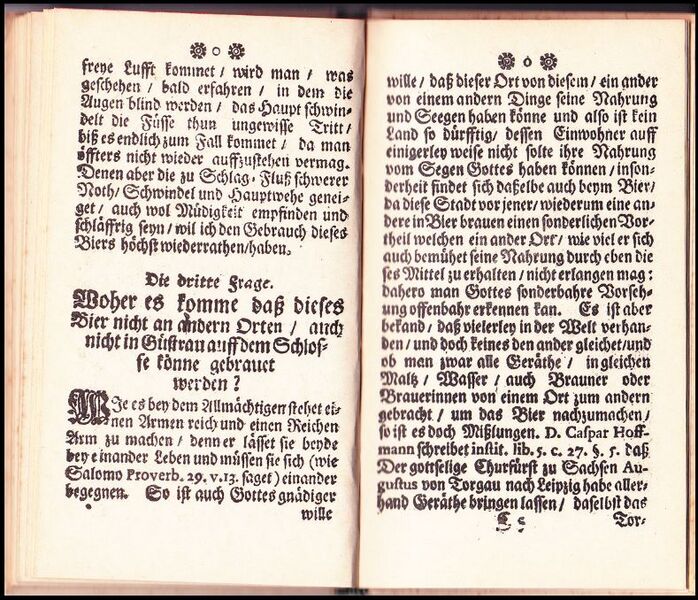 o
freye Lufft kommet / wird man / was
geschehen / bald erfahren / in dem die
Augen blind werden / das Haupt schwin-
delt die Füsse thun ungewisse Tritt /
biß es endlich zum Fall kommet / da man
öffters nicht wieder auffzustehen vermag.
Denen aber die zu Schlag- Fluß schwerer
Noth / Schwindel und Hauptwehe genei-
get / auch wol Müdigkeit empfinden und
schläffrig seyn / wil ich den Gebrauch dieses
Biers höchst wiederrathen / haben.
Die dritte Frage.
Woher es komme daß dieses
Bier nicht an andern Orten / auch
nicht in Güstrau auff dem Schlos-
se könne gebrauet
werden?
WJe es bey dem Allmächtigen stehet ei-
nen Armen reich und einen Reichen
Arm zu machen / denn er lässet sie beyde
bey einander Leben und müssen sie sich (wie
Salomo Proverb. 29. v.13. saget) einander
begegnen. So ist auch Gottes gnädiger
wille
o
wille / daß dieser Ort von diesem / ein ander
von einem andern Dinge seine Nahrung
und Seegen haben könne und also ist kein
Land so dürfftig / dessen Einwohner auff
einigerley weise nicht solte ihre Nahrung
vom Segen Gottes haben können / inson-
derheit findet sich daßelbe auch beym Bier /
da diese Stadt vor jener / wiederum eine an-
dere in Bier brauen einen sonderlichen Vor-
theil welchen ein ander Ort / wie viel er sich
auch bemühet seine Nahrung durch eben die
ses Mittel zu erhalten / nicht erlangen mag:
dahero man Gottes sonderbahre Vorseh-
ung offenbahr erkennen kan. Es ist aber
bekand / daß vielerley in der Welt verhan-
den / und doch keines den ander gleichet / und
ob man zwar alle Geräthe / in gleichen
Maltz / Wasser / auch Brauner oder
Brauerinnen von einem Ort zum andern
gebracht / um das Bier nachzumachen /
so ist es doch Mißlungen. D. Caspar Hoff-
mann schreibet instit. lib. 5. c. 27. §. 5. daß
Der gottselige Churfürst zu Sachsen Au-
gustus von Torgau nach Leipzig habe aller-
hand Geräthe bringen lassen / daselbst das
Tor-